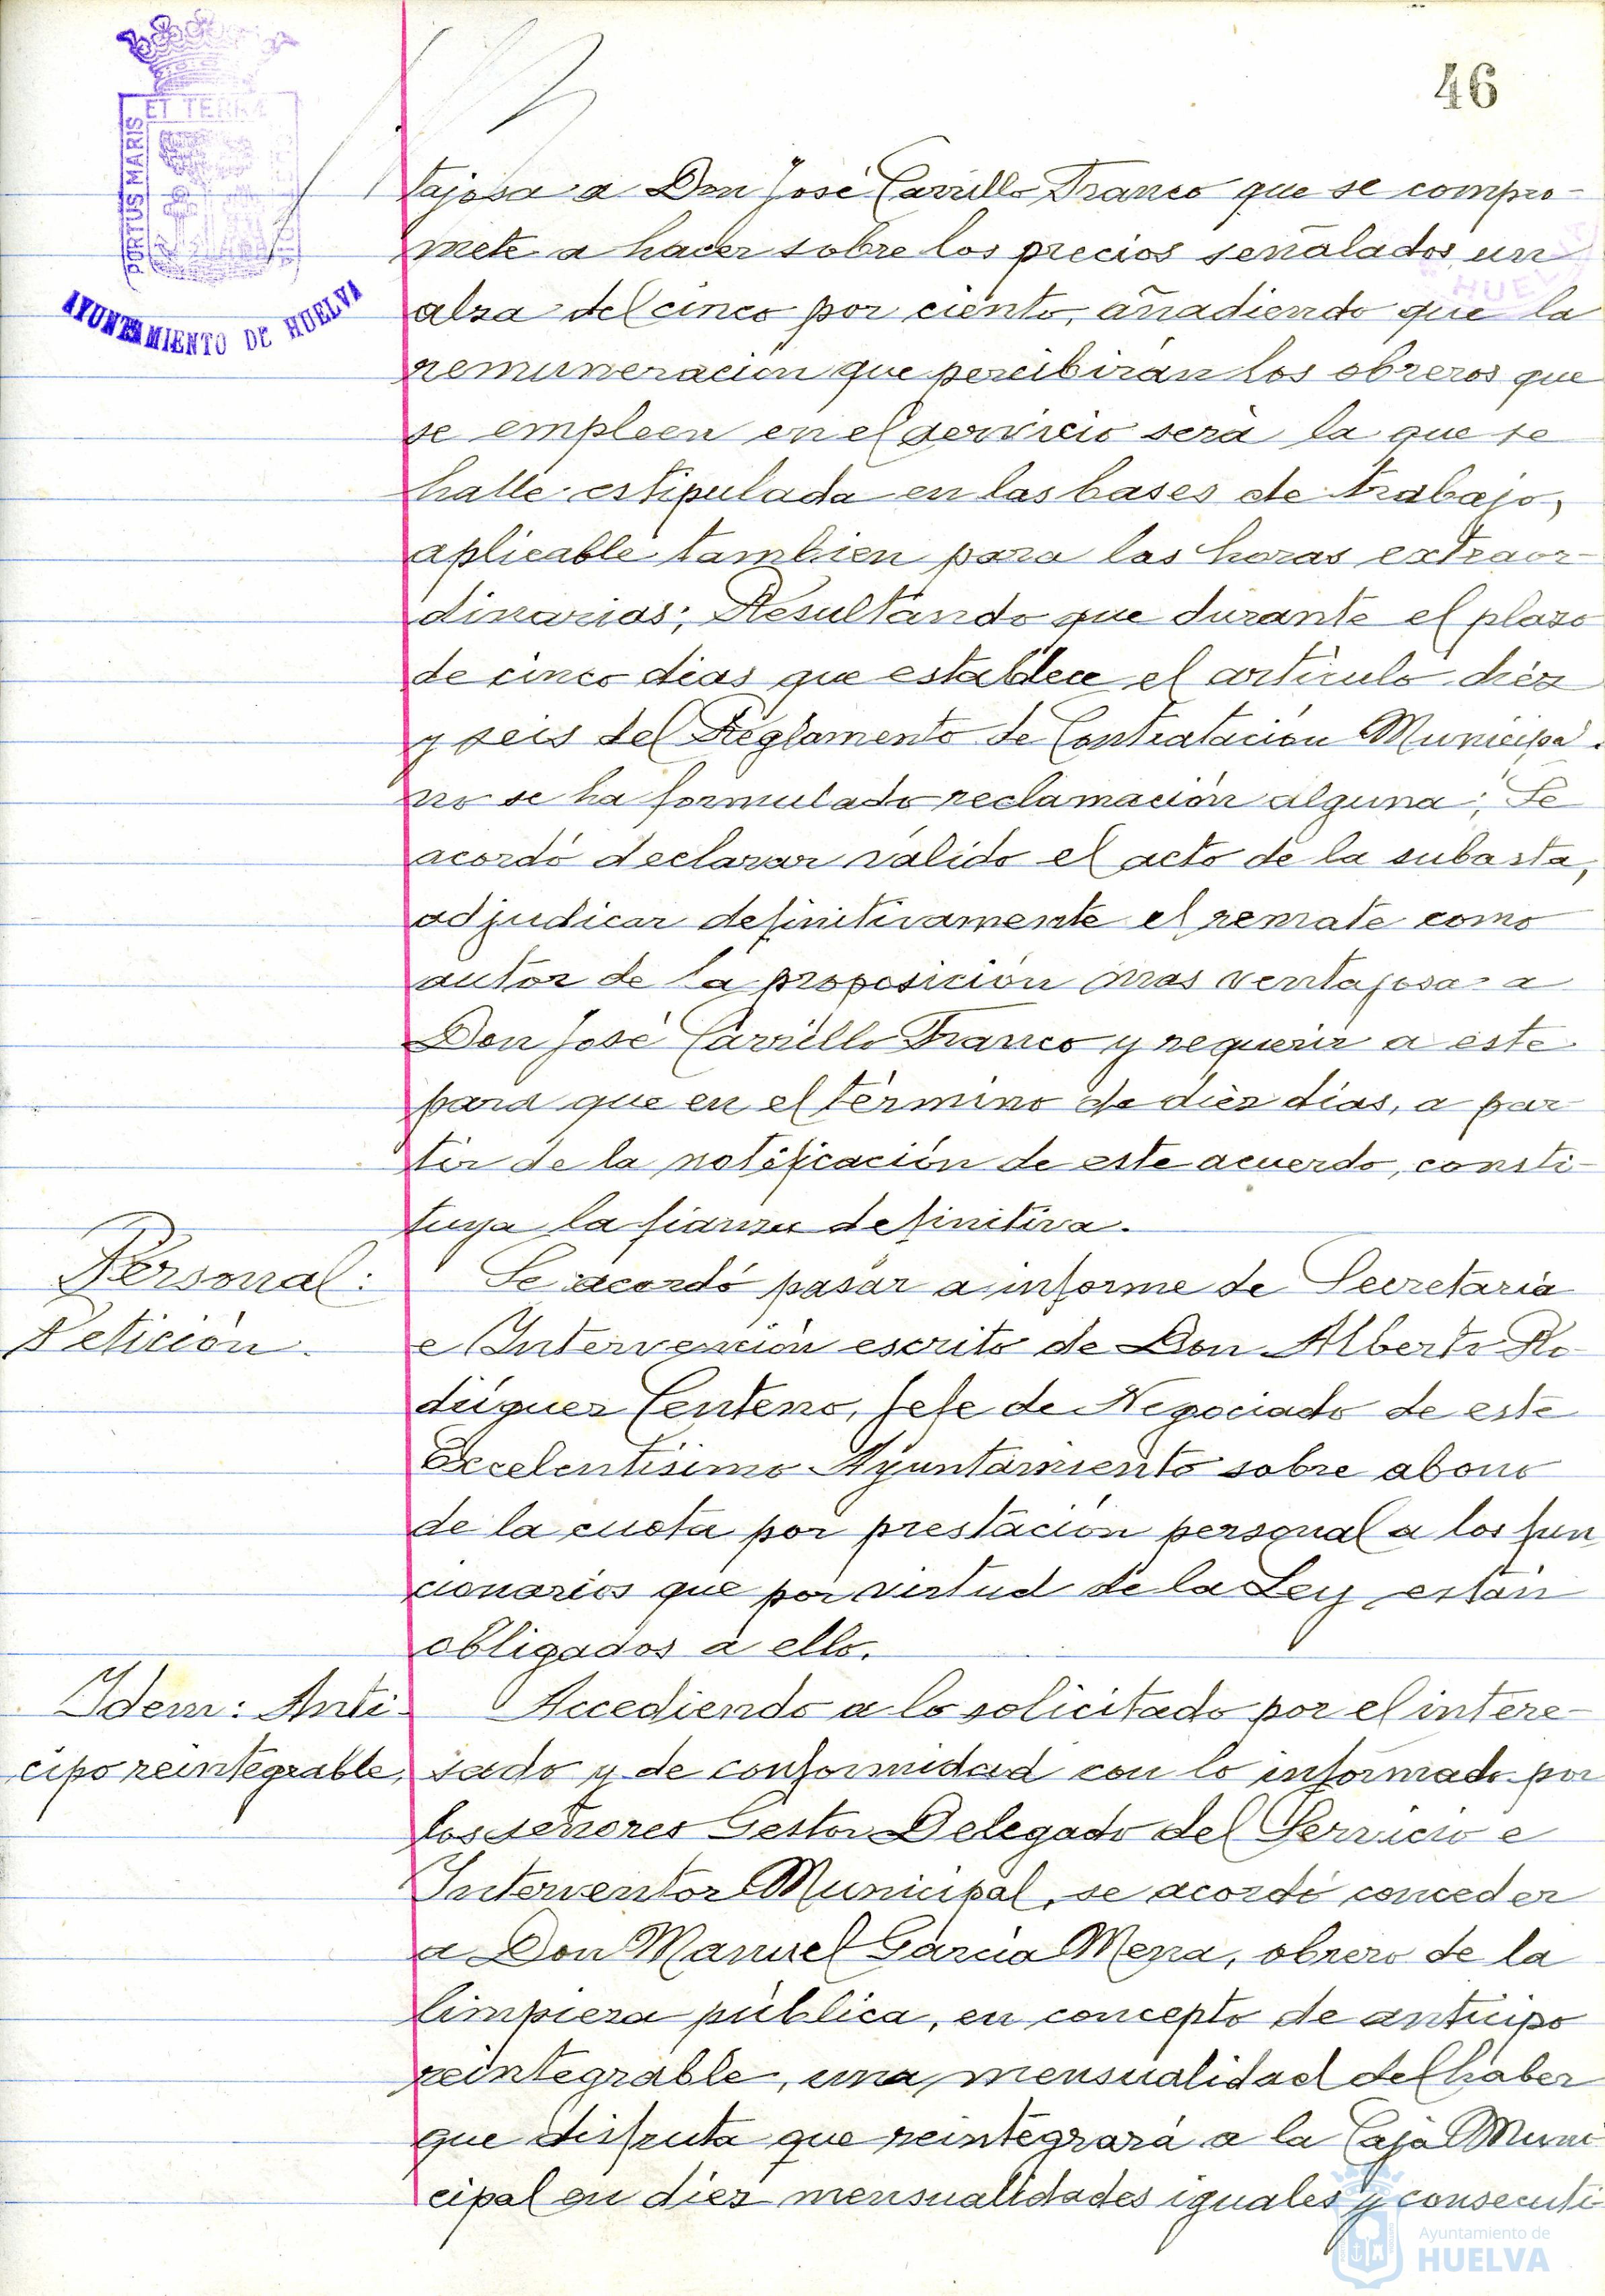 46
PORTUS MARIS ET TERRÆ
AYUNTAMIENTO DE HUELVA
tajosa a Don José Carrillo Franco que se compro-
mete a hacer sobre los precios señalados un
alza del cinco por ciento, añadiendo que la
remuneración que percibirán los obreros que
se empleen en el servicio será la que se
halle estipulada en las bases de trabajo,
aplicable tambien para las horas extraor-
dinarias; Resultando que durante el plazo
de cinco dias que establece el artículo diéz
y seis del Reglamento de Contratación Municipal
no se ha formulado reclamación alguna; Se
acordó declarar válido el acto de la subasta,
adjudicar definitivamente el remate como
autor de la proposición mas ventajosa a
Don José Carrillo Franco y requerir a este
para que en el término de diéz dias, a par
tir de la notificación de este acuerdo, consti-
tuya la fianza definitiva.
Personal:
Petición.
Se acordó pasar a informe de Secretaria
e Intervención escrito de Don Alberto Ro-
dríguez Centeno, Jefe de Negociado de este
Excelentísimo Ayuntamiento sobre abono
de la cuota por prestación personal a los fun
cionarios que por virtud de la Ley están
obligados a ello.
Idem: Anti-
cipo reintegrable,
Accediendo a lo solicitado por el intere-
sado y de conformidad con lo informado por
los señores Gestor Delegado del Servicio e
Interventor Municipal, se acordó conceder
a Don Manuel García Mena, obrero de la
limpieza pública, en concepto de anticipo
reintegrable, una mensualidad del haber
que disfruta que reintegrará a la Caja Muni
cipal en diez mensualidades iguales y consecuti-
Ayuntamiento de
HUELVA